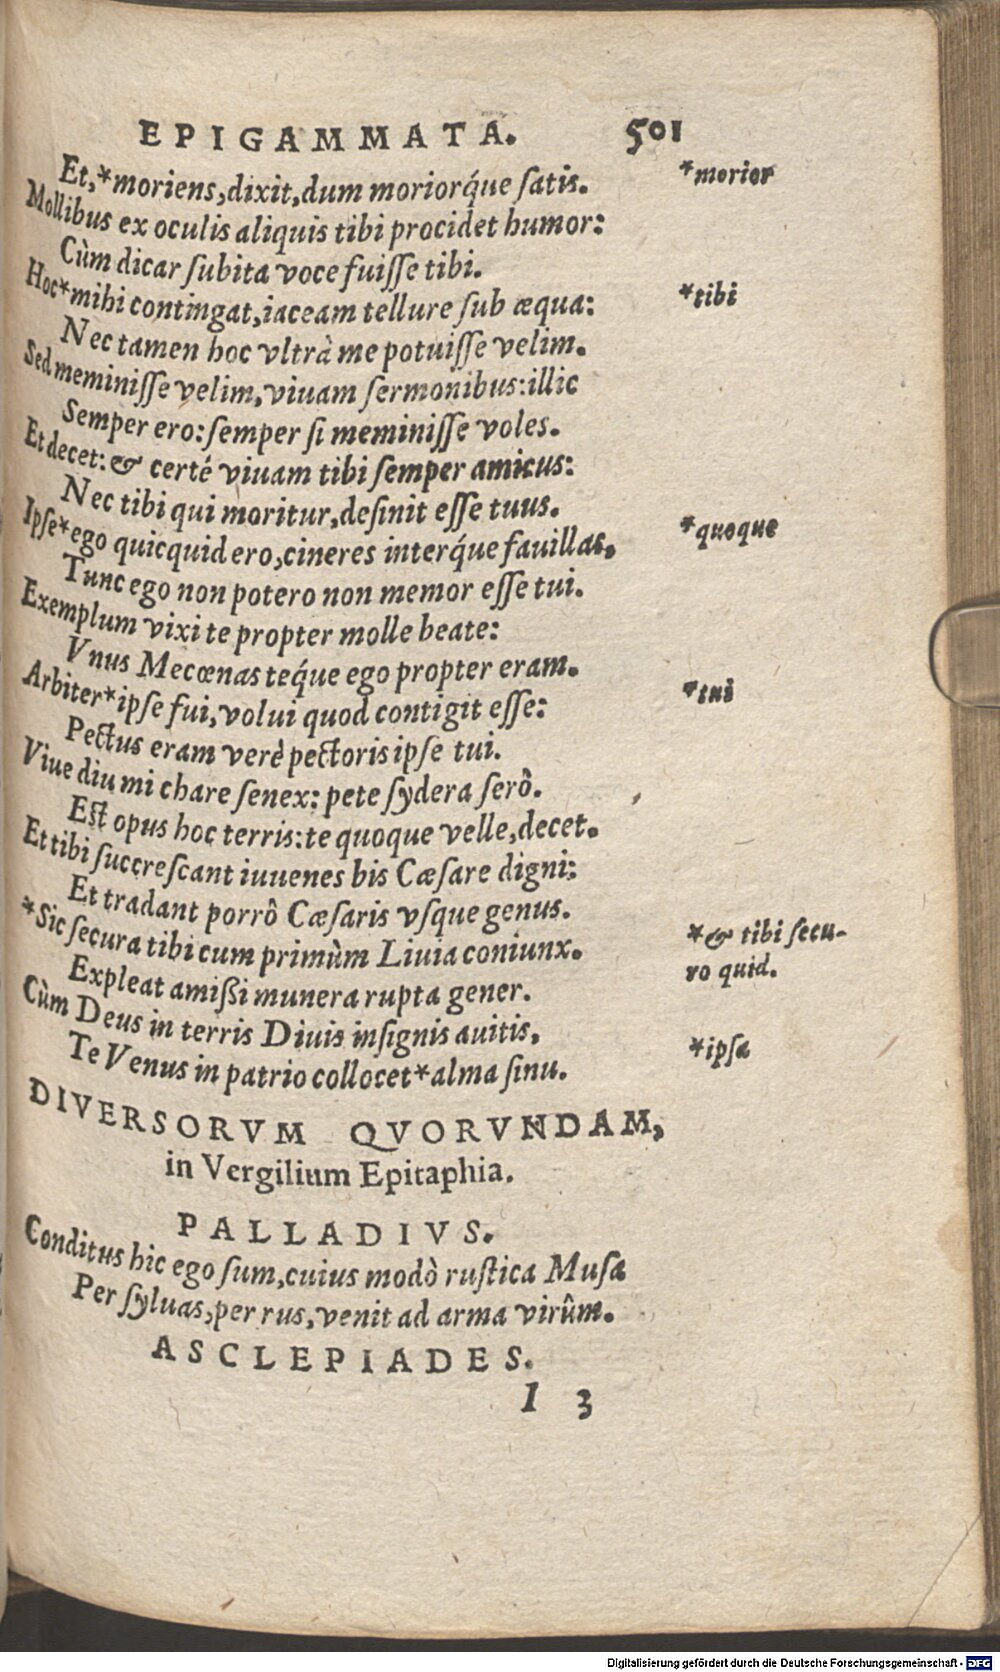 EPIGAMMATA. 501
Et,*moriens,dixit,dum moriorq́ue ſatis. *morior
Mollibus ex oculis aliquis tibi procidet humor:
Cùm dicar ſubita voce fuiſſe tibi.
Hoc*mihi contingat,iaceam tellure ſub æqua: *tibi
Nec tamen hoc vltrà me potuiſſe velim.
Sed meminiſſe velim,viuam ſermonibus:illic
Semper ero:ſemper ſi meminiſſe voles.
Et decet:& certé viuam tibi ſemper amicus:
Nec tibi qui moritur,deſinit eſſe tuus.
Ipſe*ego quicquid ero,cineres interq́ue fauillas. *quoque
Tunc ego non potero non memor eſſe tui.
Exemplum vixi te propter molle beate:
Vnus Mecœnas teq́ue ego propter eram.
Arbiter*ipſe fui,volui quod contigit eſſe: *tui
Pectus eram verè pectoris ipſe tui.
Viue diu mi chare ſenex:pete ſydera ſerô.
Eſt opus hoc terris:te quoque velle,decet.
Et tibi ſuccreſcant iuuenes bis Cæſare digni:
Et tradant porrô Cæſaris vſque genus.
*Sic ſecura tibi cum primùm Liuia coniunx. *& tibi ſecu-
ro quid.
Expleat amiſsi munera rupta gener.
Cùm Deus in terris Diuis inſignis auitis,
Te Venus in patrio collocet*alma ſinu. *ipſa
DIVERSORVM QVORVNDAM,
in Vergilium Epitaphia.
PALLADIVS.
Conditus hic ego ſum,cuius modò ruſtica Muſa
Per ſyluas,per rus,venit ad arma virûm.
ASCLEPIADES.
I 3
Digitalisierung gefördert durch die Deutsche Forschungsgemeinschaft - DFG